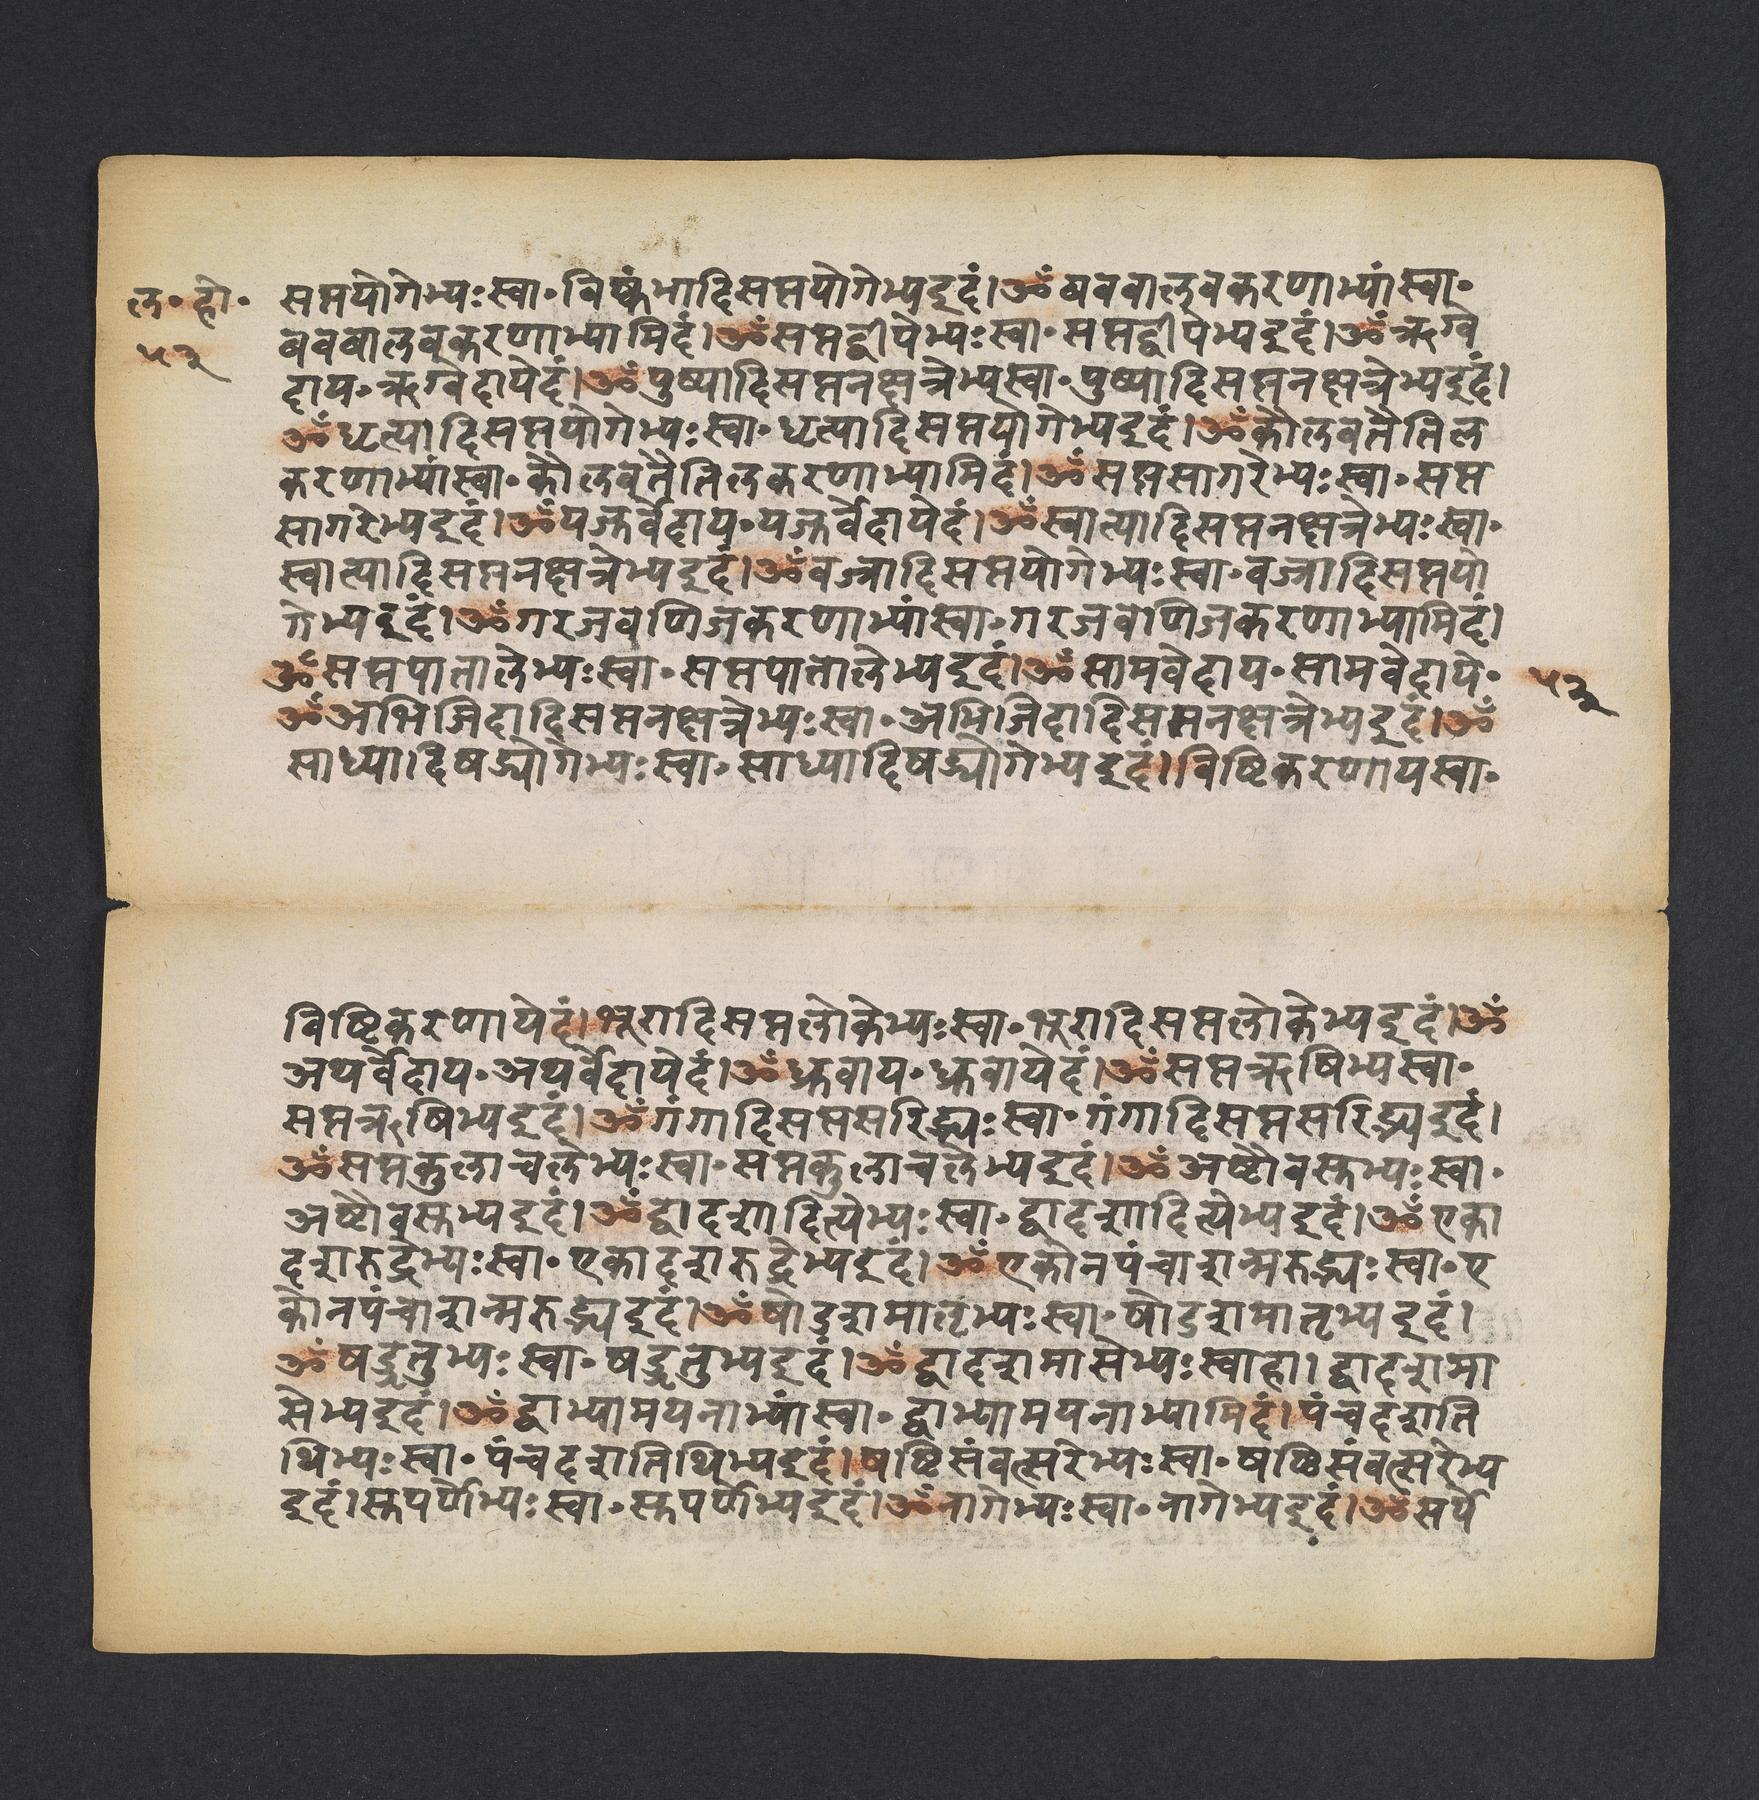 ल॰ हो॰
५३
सप्तयोगेभ्यःस्वा॰विष्कंभादिसप्तयोगेभ्यइदं।ॐबवबालवकरणाभ्यांस्वा॰
बवबालवकरणाभ्यामिदं।ॐसप्तद्वीपेभ्यःस्वा॰सप्तद्वीपेभ्यइदं।ॐऋग्वे
दाय॰ऋग्वेदायेदं।ॐपुष्यादिसप्तनक्षत्रेभ्यस्वा॰पुष्यादिसप्तनक्षत्रेभ्यइदं।
ॐधृत्यादिसप्तयोगेभ्यःस्वा॰धृत्यादिसप्तयोगेभ्यइदं।ॐकौलवतैतिल
करणाभ्यांस्वा॰कौलवतैतिलकरणाभ्यामिदं।ॐसप्तसागरेभ्यःस्वा॰सप्त
सागरेभ्यइदं।ॐयजुर्वेदाय॰यजुर्वेदायेदं।ॐस्वात्यादिसप्तनक्षत्रेभ्यःस्वा॰
स्वात्यादिसप्तनक्षत्रेभ्यइदं।ॐवज्रादिसप्तयोगेभ्यःस्वा॰वज्रादिसप्तयो
गेभ्यइदं।ॐगरजवणिजकरणाभ्यांस्वा॰गरजवणिजकरणाभ्यामिदं।
ॐसप्तपातालेभ्यःस्वा॰सप्तपातालेभ्यइदं।ॐसामवेदाय॰सामवेदाये॰
५३
ॐअभिजिदादिसप्तनक्षत्रेभ्यःस्वा॰अभिजिदादिसप्तनक्षत्रेभ्यइदं।ॐ
साध्यादिषड्योगेभ्यःस्वा॰साध्यादिषड्योगेभ्यइदं।विष्टिकरणायस्वा॰
विष्टिकरणायेदं।भूरादिसप्तलोकेभ्यःस्वा॰भूरादिसप्तलोकेभ्यइदं।ॐ
अथर्वेदाय॰अथर्वेदायेदं।ॐध्रुवाय॰ध्रुवायेदं।ॐसप्तऋषिभ्यस्वा॰
सप्तऋषिभ्यइदं।ॐगंगादिसप्तसरिद्भ्यःस्वा॰गंगादिसप्तसरिद्भ्यइदं।
ॐसप्तकुलाचलेभ्यःस्वा॰सप्तकुलाचलेभ्यइदं।ॐअष्टौवसुभ्यःस्वा॰
अष्टौवसुभ्यइदं।ॐद्वादशादित्येभ्यःस्वा॰द्वादशादित्येभ्यइदं।ॐएका
दशरुद्रेभ्यःस्वा॰एकादशरुद्रेभ्यइदं।ॐएकोनपंचाशन्मरुद्भ्यःस्वा॰ए
कोनपंचाशन्मरुद्भ्यइदं।ॐषोडशमातृभ्यःस्वा॰षोडशमातृभ्यइदं।
ॐषडृतुभ्यःस्वा॰षडृतुभ्यइदं।ॐद्वादशमासेभ्यःस्वाहा।द्वादशमा
सेभ्यइदं।ॐद्वाभ्यामयनाभ्यांस्वा॰द्वाभ्यामयनाभ्यामिदं।पंचदशति
थिभ्यःस्वा॰पंचदशतिथिभ्यइदं।षष्टिसंवत्सरेभ्यःस्वा॰षष्टिसंवत्सरेभ्य
इदं।सुपर्णेभ्यःस्वा॰सुपर्णेभ्यइदं।ॐनागेभ्यःस्वा॰नागेभ्यइदं।ॐसर्पे